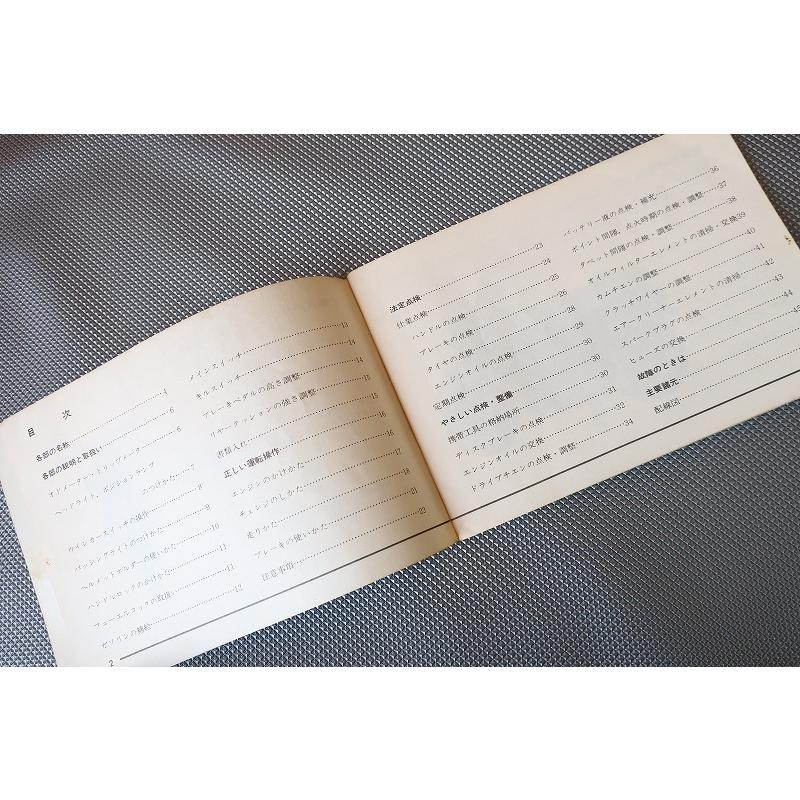 目 次
各部の名称……4
各部の説明と取扱い……6
オドメーター、トリップメーター……6
ヘッドライト、ポジションランプ
のつけかた……7
ウインカースイッチの操作……8
パッシングライトのつけかた……9
ヘルメットホルダーの使いかた……10
ハンドルロックのかけかた……11
フューエルコックの取扱い……11
ガソリンの補給……12
メインスイッチ……13
キルスイッチ……14
ブレーキペダルの高さ調整……14
リヤークッションの強さ調整……15
書類入れ……15
正しい運転操作……16
エンジンのかけかた……16
チェンジのしかた……17
走りかた……18
ブレーキの使いかた……21
注意事項……22
2
法定点検……23
仕業点検……24
ハンドルの点検……25
ブレーキの点検……26
タイヤの点検……28
エンジンオイルの点検……29
定期点検……30
やさしい点検・整備……30
携帯工具の格納場所……31
ディスクブレーキの点検……32
エンジンオイルの交換……34
ドライブチエンの点検・調整
バッテリー液の点検・補充……36
ポイント間隙、点火時期の点検・調整……37
タペット間隙の点検・調整……38
オイルフィルターエレメントの清掃・交換39
カムチエンの調整……40
クラッチワイヤーの調整……41
エアークリーナーエレメントの清掃……42
スパークプラグの点検……43
ヒューズの交換……44
故障のときは
主要諸元
配線図